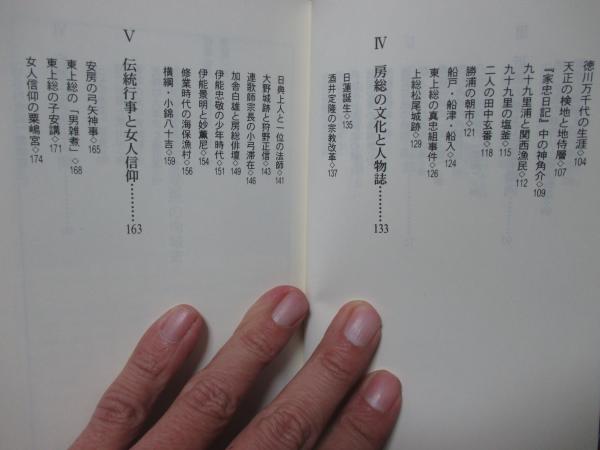 徳川万千代の生涯◇104
天正の検地と地侍層◇107
『家忠日記』中の神角介◇109
九十九里浦と関西漁民◇112
九十九里の塩釜◇115
二人の田中玄蕃◇118
勝浦の朝市◇121
船戸・船津・船入◇124
東上総の真忠組事件◇126
上総松尾城跡◇129
Ⅳ 房総の文化と人物誌………133
日蓮誕生◇135
酒井定隆の宗教改革◇137
日典上人と一位の法師◇141
大野城跡と狩野正信◇143
連歌師宗長の小弓滞在◇146
加舎白雄と房総俳壇◇149
伊能忠敬の少年時代◇151
伊能景明と妙薫尼◇154
修業時代の海保漁村◇156
横綱・小錦八十吉◇159
Ⅴ 伝統行事と女人信仰………163
安房の弓矢神事◇165
東上総の「男雑煮」◇168
東上総の子安講◇171
女人信仰の粟嶋宮◇174